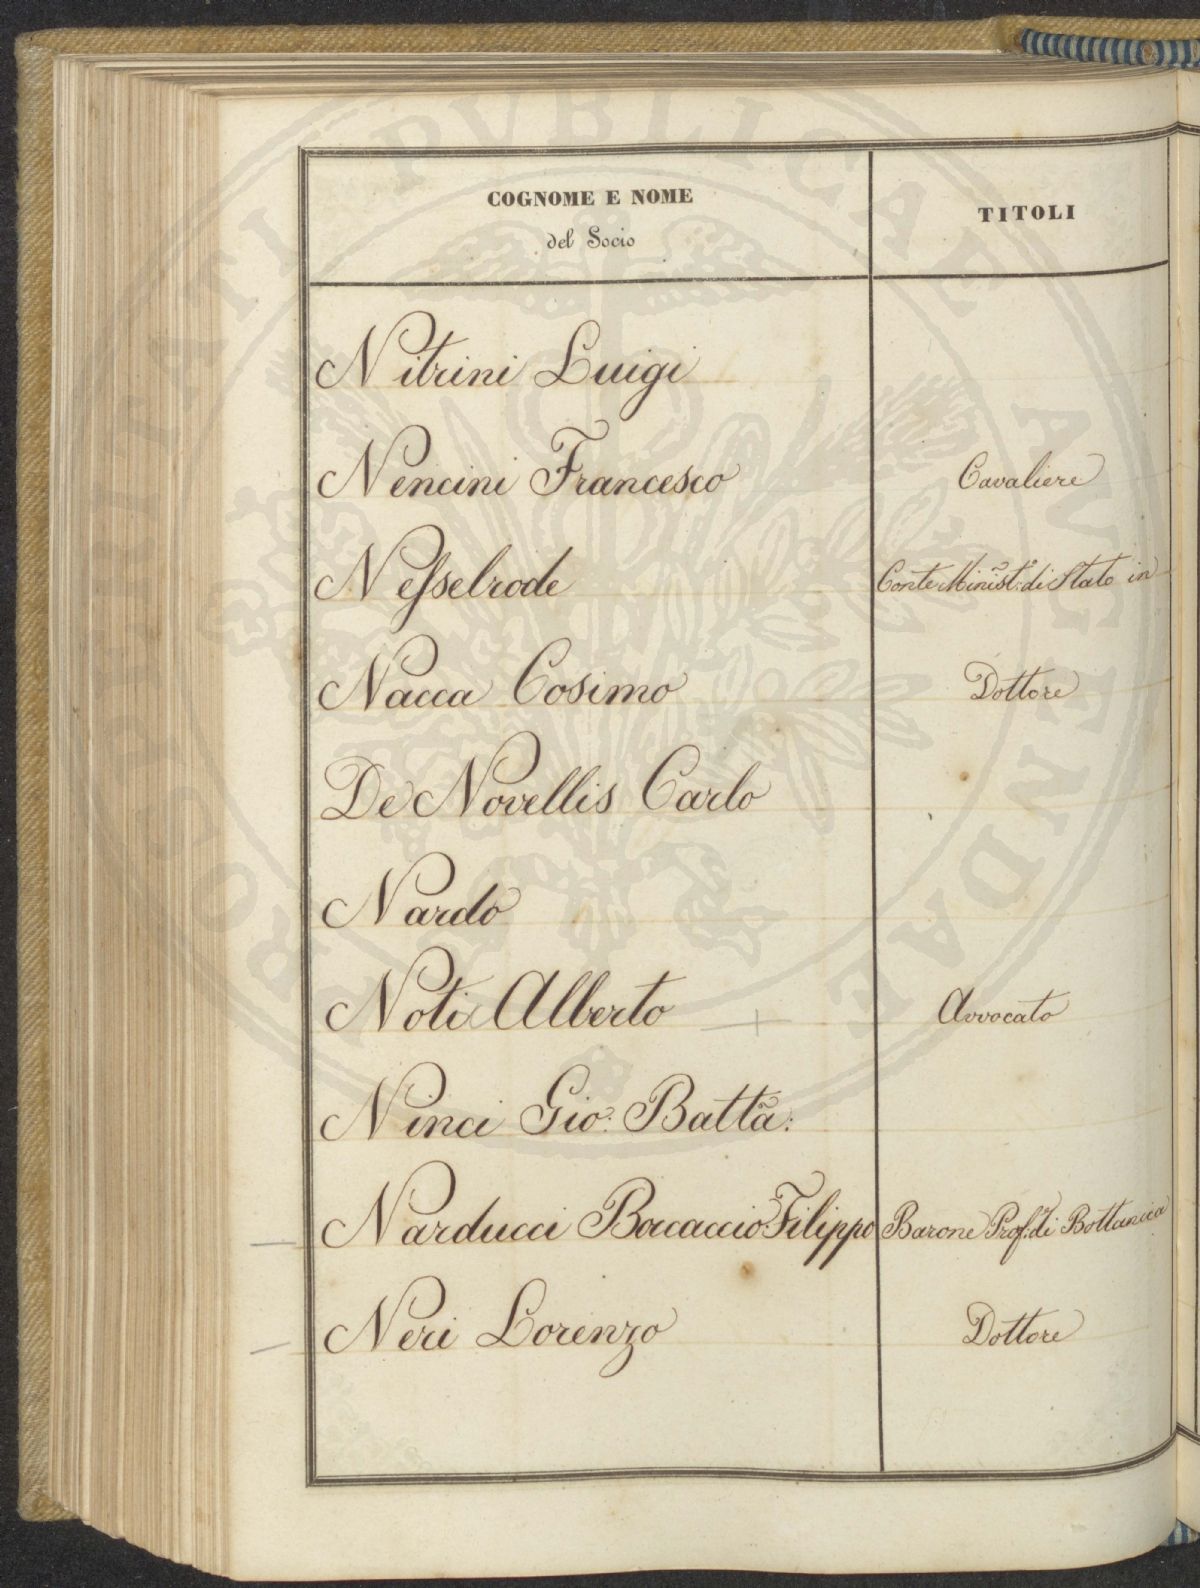 COGNOME E NOME
del Socio
TITOLI
Nitrini Luigi
Nencini Francesco Cavaliere
Neſselrode Conte Minist:º di Stato in
Nacca Cosimo Dottore
De Novellis Carlo
Nardo
Noti Alberto Avvocato
Ninci Gio: Batta:
Narducci Boccaccio Filippo Barone Prof: di Bottanica
Neri Lorenzo Dottore